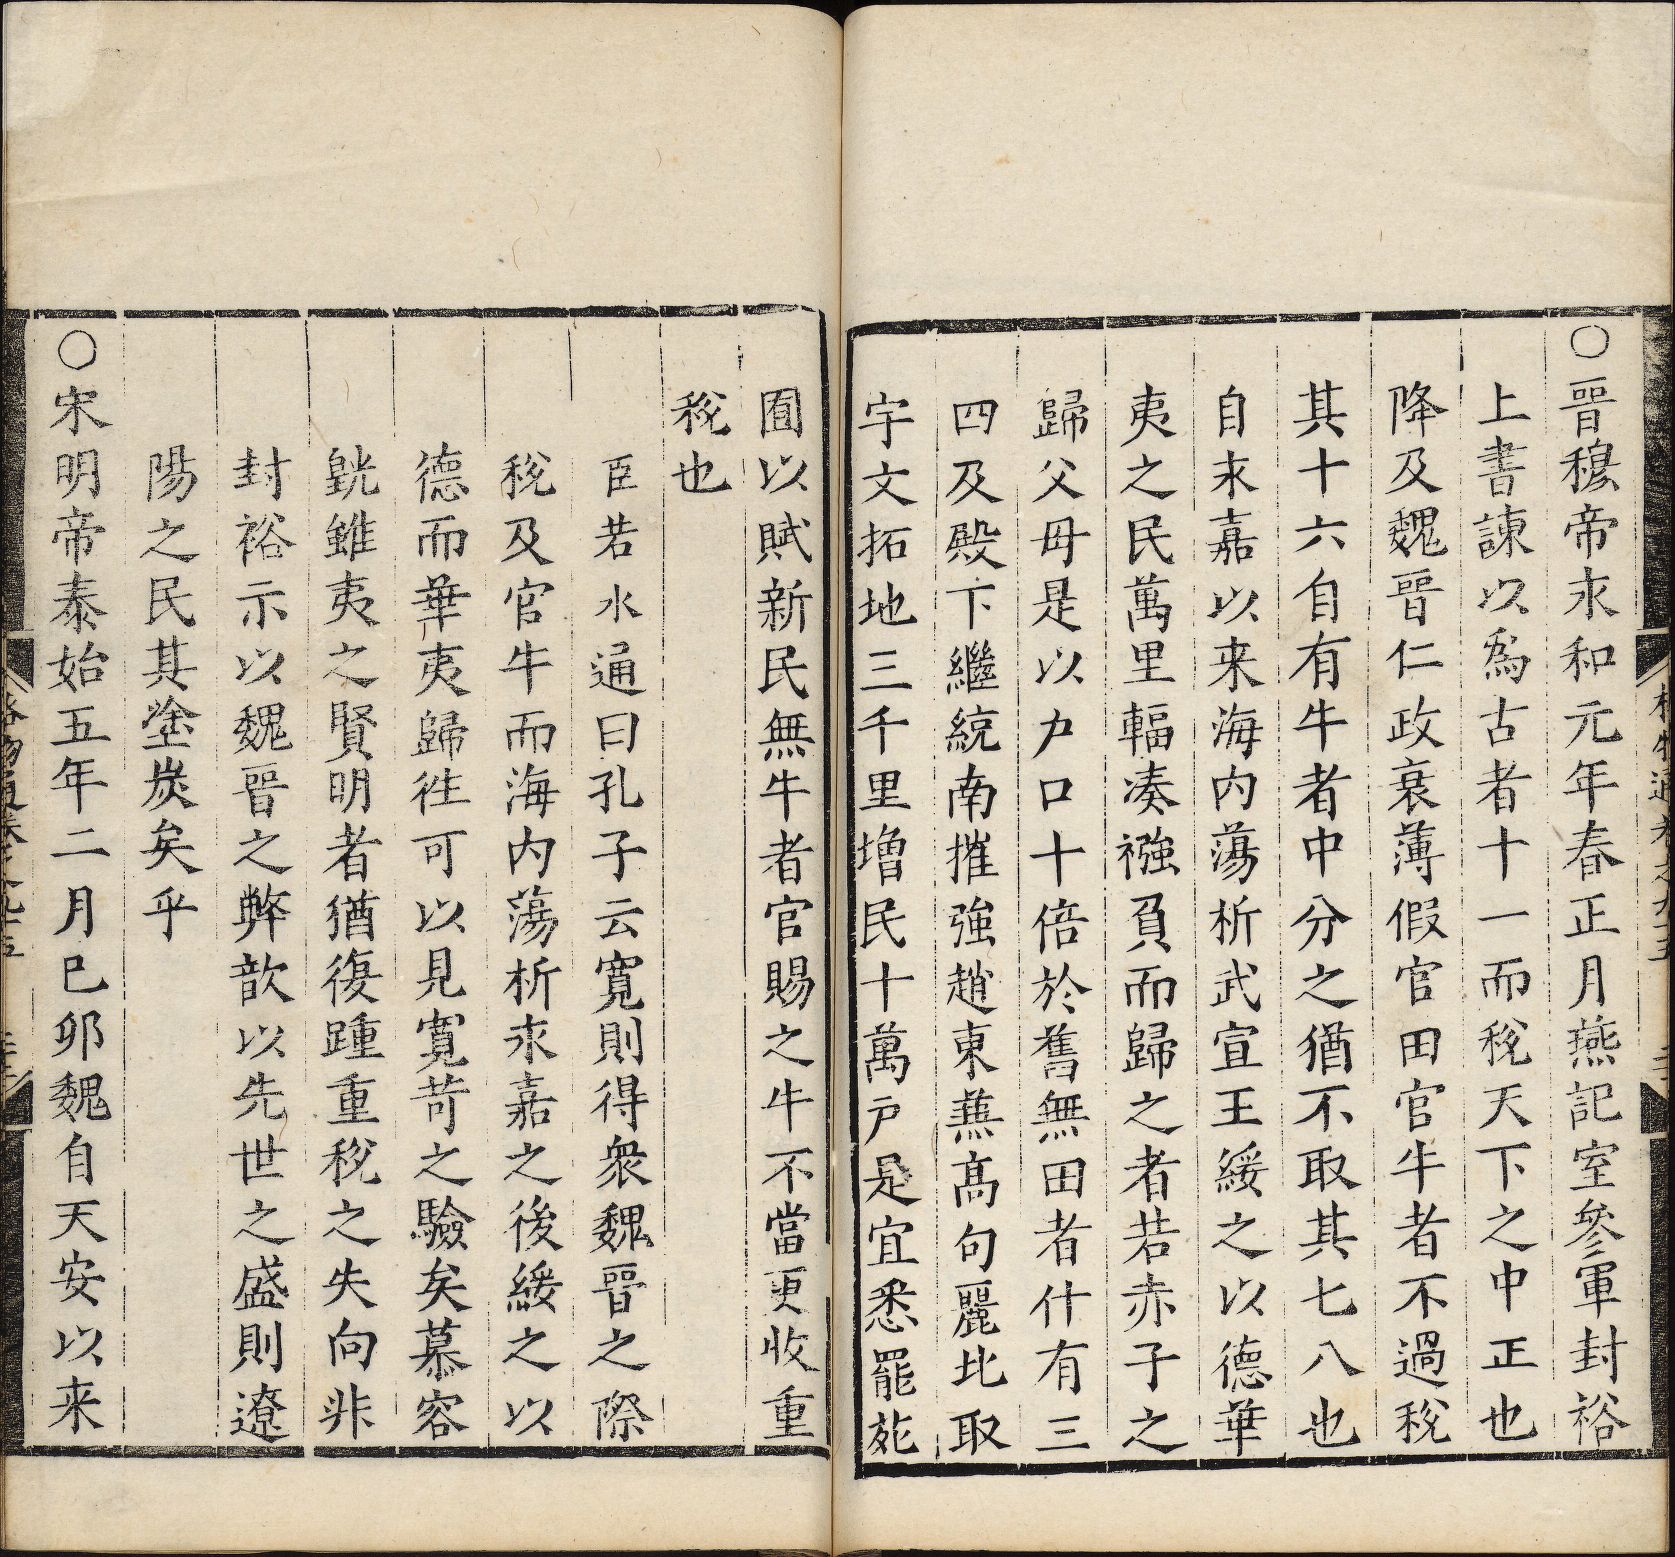 ○晉穆帝永和元年春正月燕記室參軍封裕
上書諫以爲古者十一而稅天下之中正也
降及魏晉仁政衰薄假官田官牛者不過稅
其十六自有牛者中分之猶不取其七八也
自永嘉以来海内蕩析武宣王綏之以德華
夷之民萬里輻湊襁負而歸之者若赤子之
歸父母是以户口十倍於舊無田者什有三
四及殿下繼統南摧強趙東蕪高句麗北取
宇文拓地三千里增民十萬户是宜悉罷苑
囿以賦新民無牛者官賜之牛不當更收重
稅也
臣若水通曰孔子云寬則得衆魏晉之際
稅及官牛而海内蕩析永嘉之後綏之以
德而華夷歸徃可以見寬苛之驗矣慕容
皝雖夷之賢明者猶復踵重稅之失向非
封裕示以魏晉之弊歆以先世之盛則遼
陽之民其塗炭矣乎
○宋明帝泰始五年二月己卯魏自天安以来